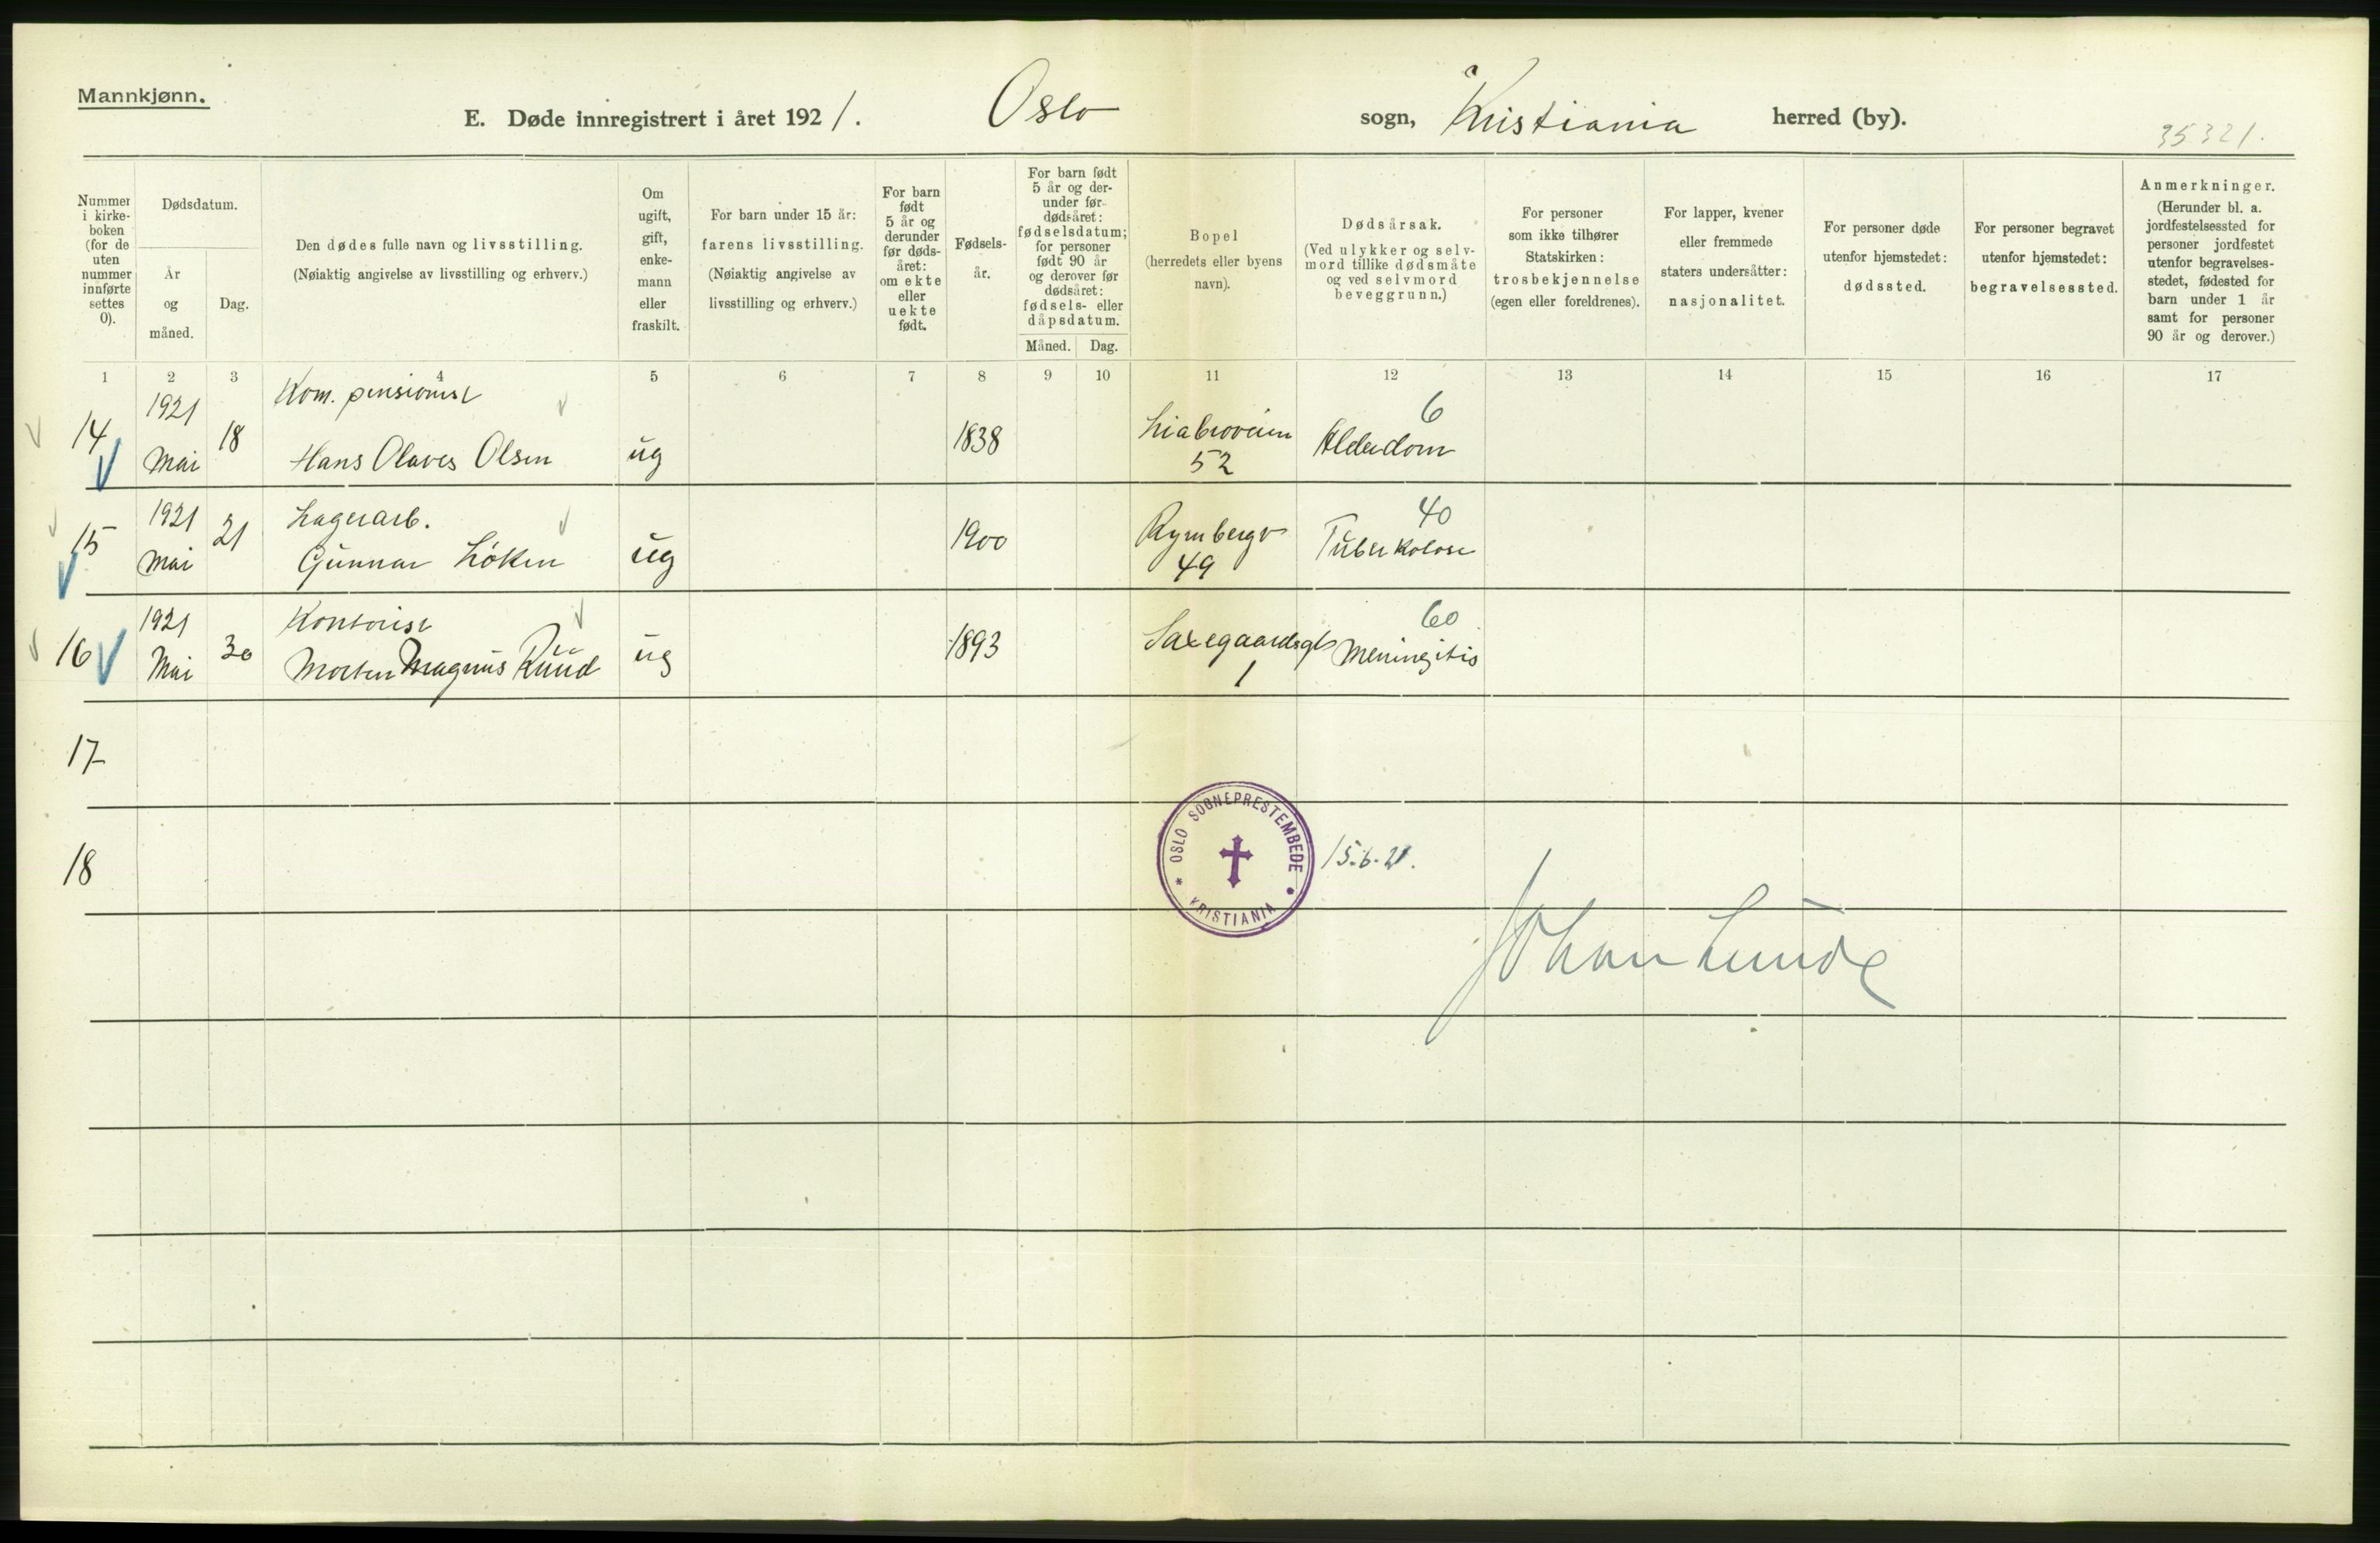 Mannkjønn.
E. Døde innregistrert i året 1921. Oslo sogn, Kristiania herred (by).
35321.
Nummer i kirke-boken (for de uten nummer innførte settes 0).
Dødsdatum.
År og måned.
Dag.
Den dødes fulle navn og livsstilling.
(Nøiaktig angivelse av livsstilling og erhverv.)
Om ugift, gift, enke-mann eller fraskilt.
For barn under 15 år:
farens livsstilling.
(Nøiaktig angivelse av
livsstilling og erhverv.)
For barn født 5 år og derunder før døds-året: om ekte eller uekte født.
Fødsels-år.
For barn født
5 år og der-
under før
dødsåret:
fødselsdatum;
for personer
født 90 år
og derover før
dødsåret:
fødsels- eller
dåpsdatum.
Måned. Dag.
Bopel
(herredets eller byens
navn).
Dødsårsak.
(Ved ulykker og selv-
mord tillike dødsmåte
og ved selvmord
beveggrunn.)
For personer
som ikke tilhører
Statskirken:
trosbekjennelse
(egen eller foreldrenes).
For lapper, kvener
eller fremmede
staters undersåtter:
nasjonalitet.
For personer døde
utenfor hjemstedet:
dødssted.
For personer begravet
utenfor hjemstedet:
begravelsessted.
Anmerkninger.
(Herunder bl. a.
jordfestelsessted for
personer jordfestet
utenfor begravelses-
stedet, fødested for
barn under 1 år
samt for personer
90 år og derover.)
1 2 3 4 5 6 7 8 9 10 11 12 13 14 15 16 17
14 1921 Mai 18 Kom. pensionist
Hans Olaves Olsen ug 1838 Liabroveien 52 6 Alderdom
15 1921 Mai 21 Lagerarb.
Gunnar Løken ug 1900 49 40 Tuberkolose
16 1921 Mai 30 Kontorist
Morten Magnus Ruud ug 1893 Saxegaardsgt 1 60 Meningitis
17
18
OSLO SOGNEPRESTEMBEDE
KRISTIANIA
15.6.21.
Johan Lunde